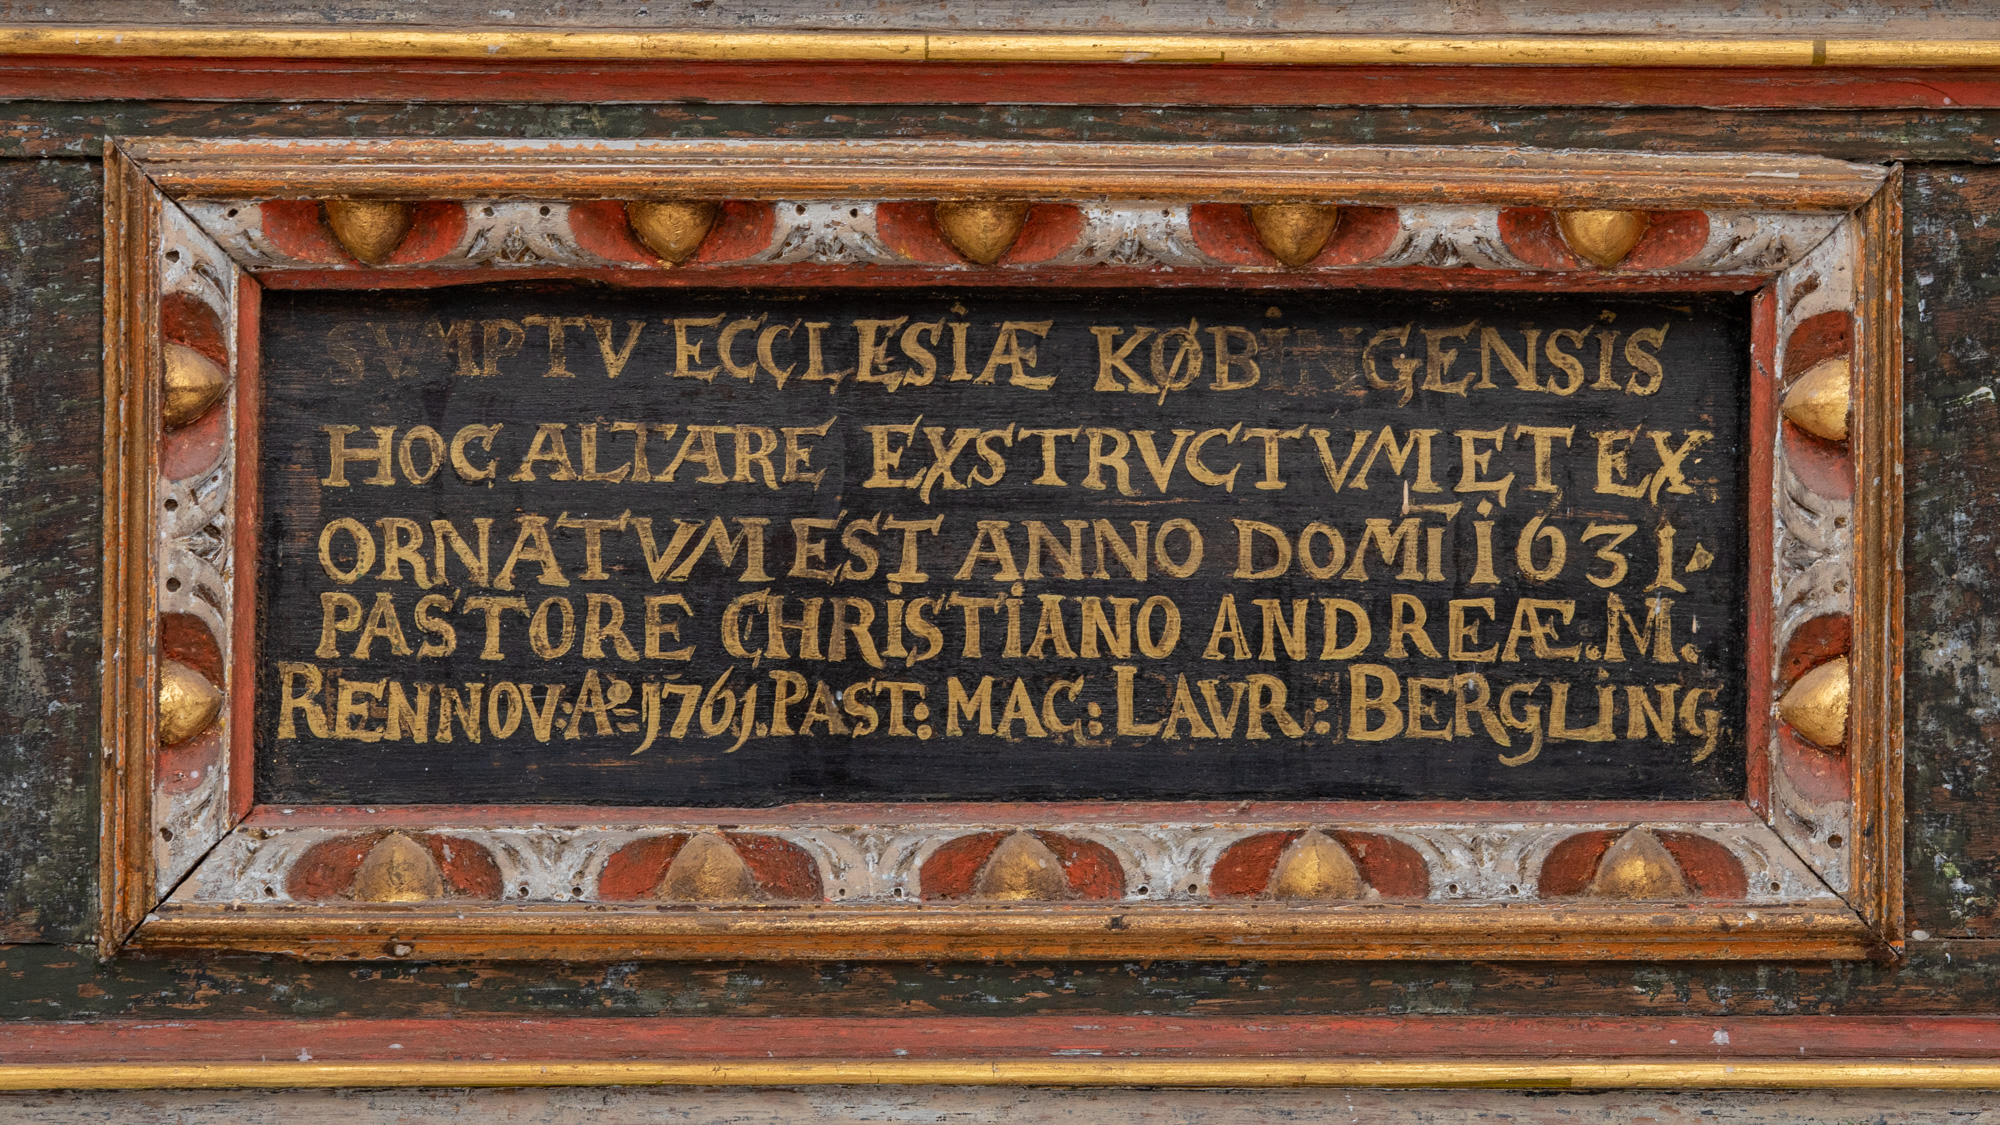 SVMPTV ECCLESIÆ KØBINGENSIS
HOC ALTARE EXSTRVCTVM ET EX
ORNATVM EST ANNO DOMĪI 1631.
PASTORE CHRISTIANO ANDREÆ.M:
RENNOV:Aº 1761. PAST: MAC: LAVR: BERGLING